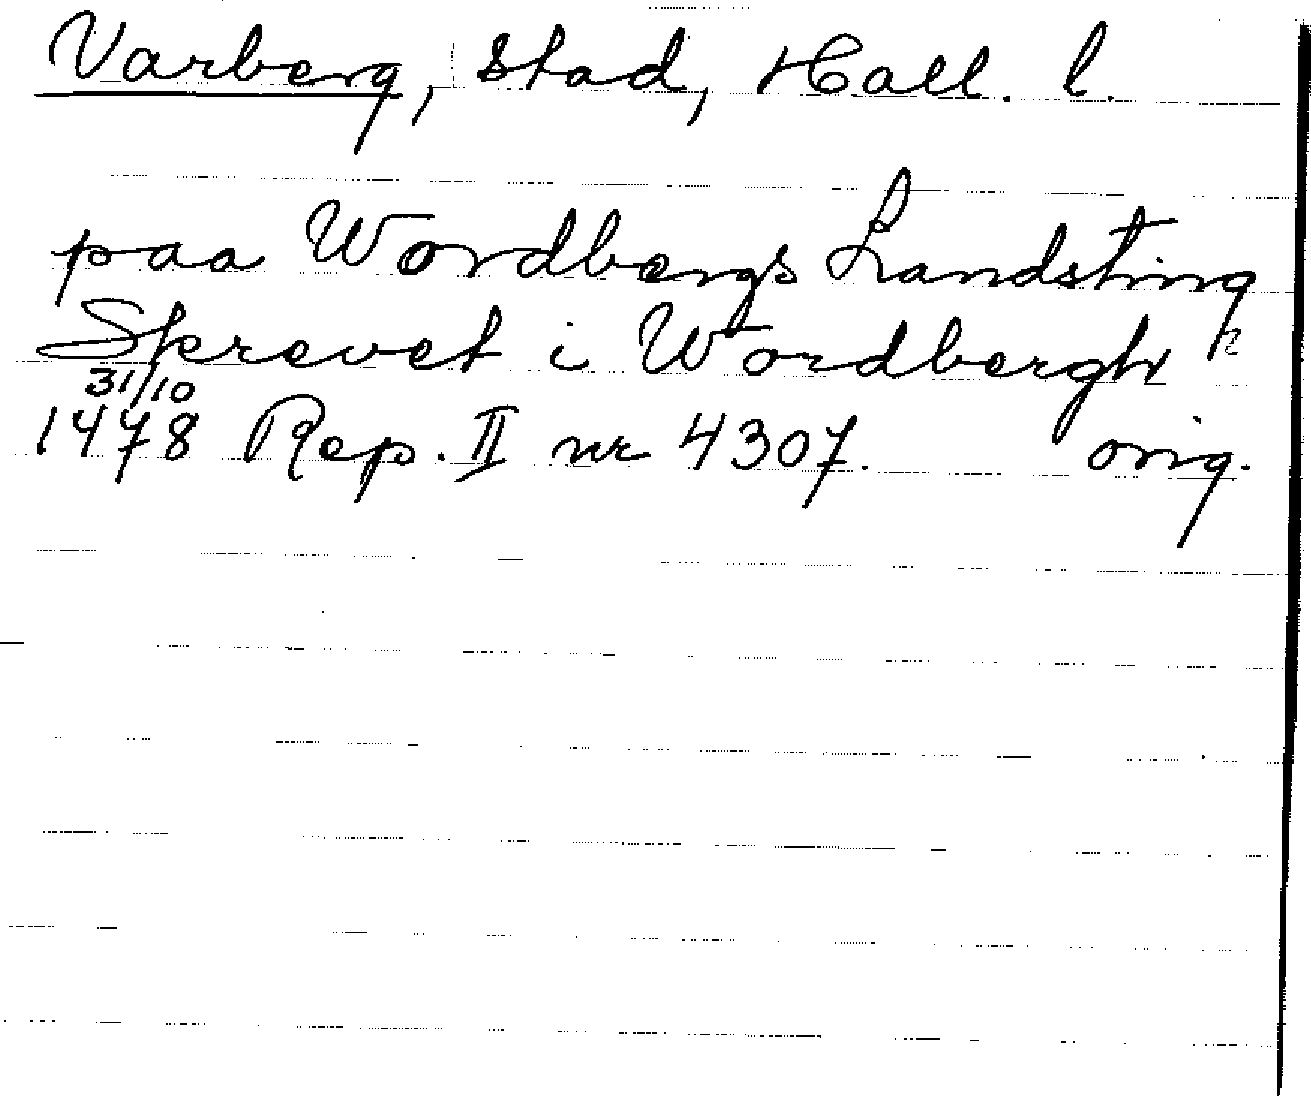 Varberg, stad, Hall. l.
paa Wordbergs Landsting
Skrevet i Wordbergh
31/10
1478 Rep. II nr 4307. orig.